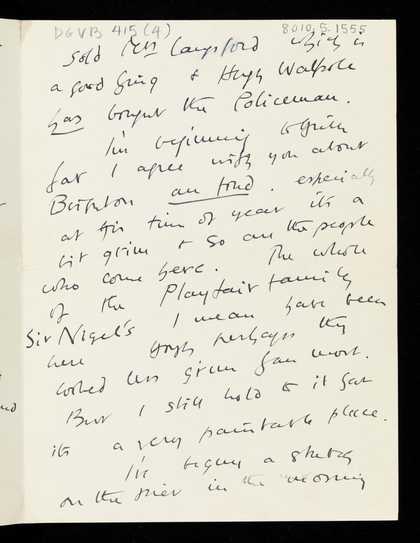 DGVB 415(4)
8010.5.1555
Sold Mrs Langsford which is
a good thing & Hugh Walpole
has bought the Policeman.
I'm beginning to think
that I agree with you about
Brighton au fond. especially
at this time of year it's a
bit grim & so are the people
who come here. The whole
of the Playfair family
Sir Nigel's I mean have been
here though perhaps they
looked less grim than most.
But I still hold to it that
its a very paintable place.
I've begun a sketch
on the pier in the morning